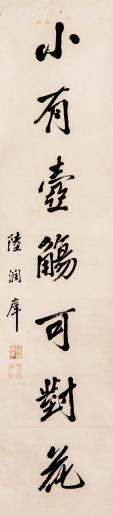 小有壺觴可對花
陸潤庠